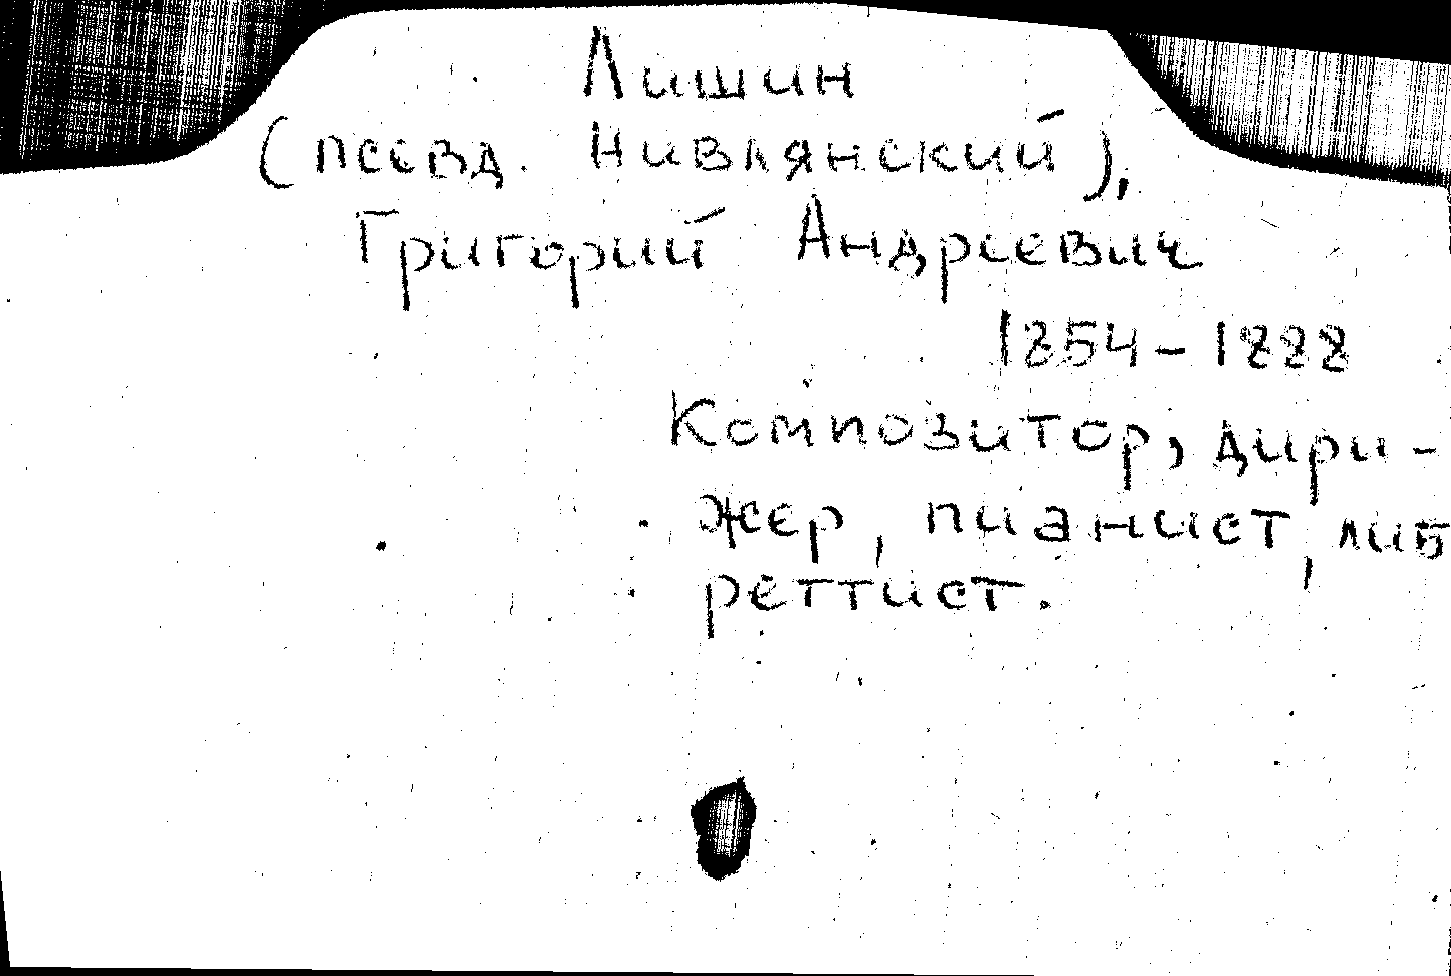 Лишин
(псевд. Нивлянский),
Григорий Андреевич
1854-1888
Композитор, дири-
жер, пианист, либ
реттист.